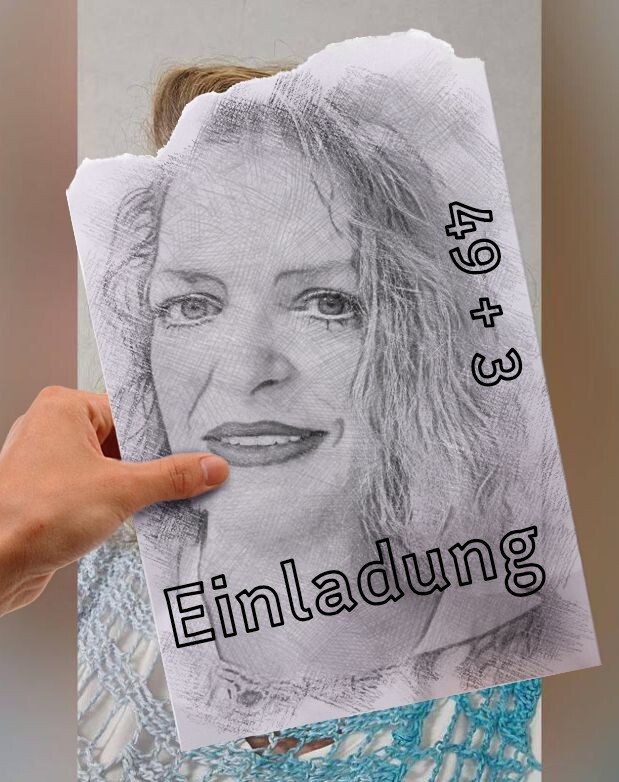 49 + 3
Einladung